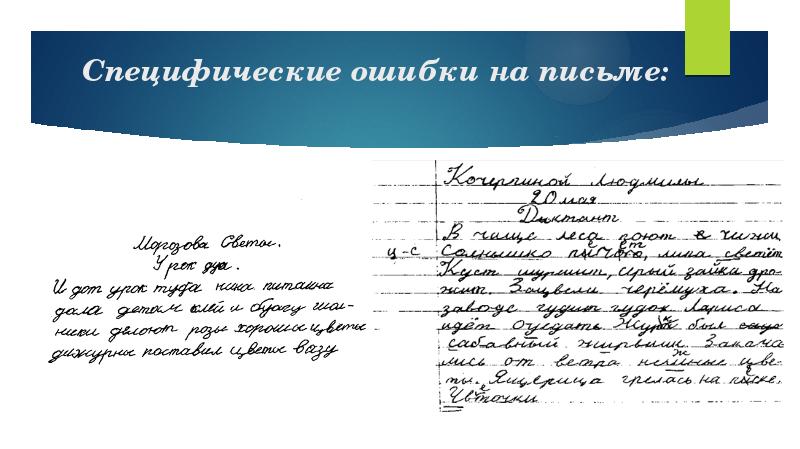 Специфические ошибки на письме:
Морозова Светы.
Урок дуа.
И дот урок туфа нина питаина
дала детам клей и бумагу
делоют розы хорошие цветы
дижурные поставил цветы вазу
Кочергиной Людмилы
20 мая
Диктант
В чаще леса поют чижи
ц-с Солнышко липа светёт
Куст шуршит, серый зайка дро-
жит. Зацвели черёмуха. На
заводе гудит гудок Лариса
идёт оцедать. Жучок был
сабавный жирвыи. Закача
лись от ветра нежные цве-
ты. Ящерица грелась на песке.
Цветочки